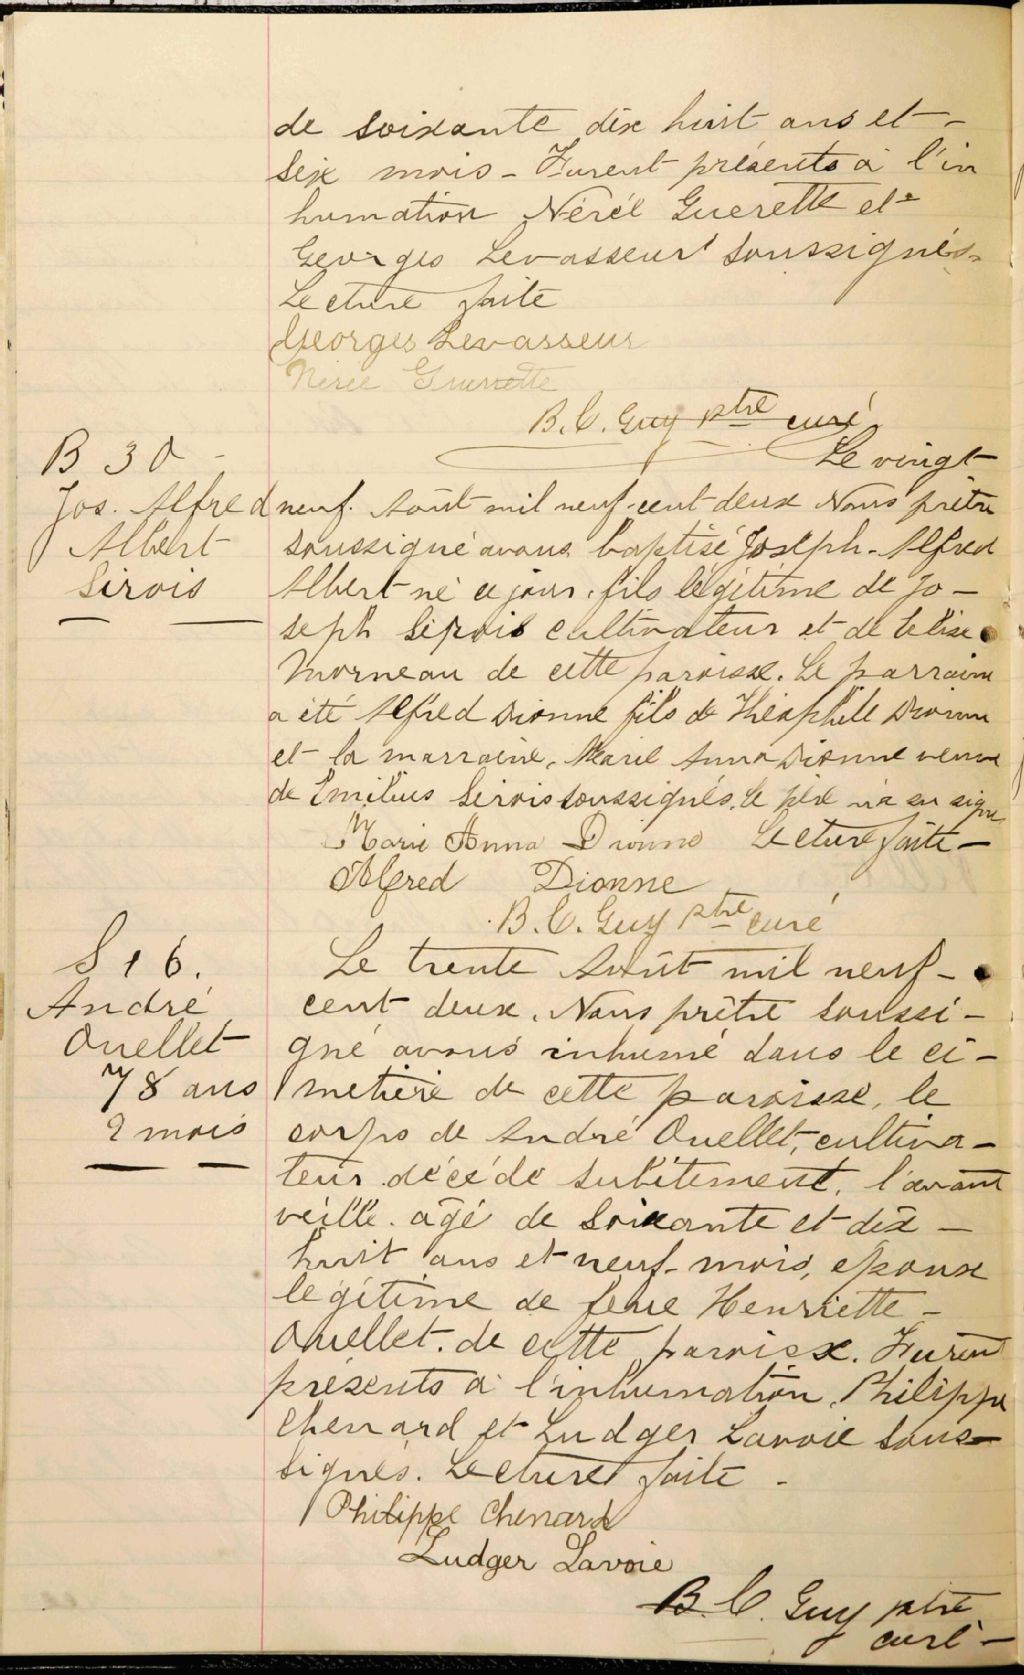 de soixante dix huit ans et -
six mois - Furent présents à l'in
humation Nérée Guerette et
Georges Levasseur soussignés.
Lecture faite
Georges Levasseur
Nérée Guerrette
B. C. Guy ptre curé
B 30 -
Le vingt
Jos. Alfred
Albert
Sirois
neuf. Août mil neuf-cent deux Nous prêtre
soussigné avons baptisé Joseph-Alfred
Albert né ce jour, fils légitime de Jo -
seph Sirois cultivateur et de
Morneau de cette paroisse. Le parrain
a été Alfred Dionne fils de Théophile Dionne
et la marraine, Marie Anna Dionne veuve
de Emilius Sirois soussignés. Le père n'a su signer
Marie Anna Dionne Lecture faite -
Alfred Dionne
B. C. Guy ptre curé
S 16.
André
Ouellet
78 ans
9 mois
Le trente Août mil neuf -
cent deux, Nous prêtre soussi -
gné avons inhumé dans le ci -
metière de cette paroisse, le
corps de André Ouellet, cultiva -
teur décédé subitement, l'avant
veille. âgé de soixante et dix -
huit ans et neuf - mois, époux
légitime de feue Henriette -
Ouellet. de cette paroisse. Furent
présents à l'inhumation, Philippe
Chenard et Ludger Lavoie sous -
signés. Lecture faite -
Philippe Chenard
Ludger Lavoie
B. C. Guy ptre
curé -